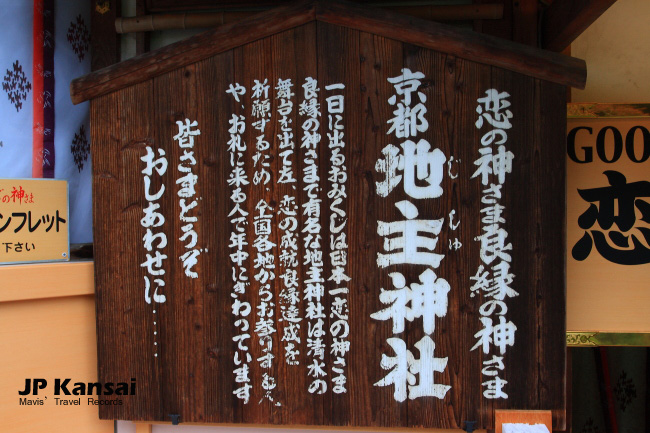 恋の神さま良縁の神さま
京都地主神社
じしゅ
一日に出るおみくじは日本一恋の神さま
良縁の神さまで有名な地主神社は清水の
舞台を出て左、恋の成就良縁達成を
祈願するため、全国各地からお参りする人
や、お礼に来る人で年中にぎわっています
皆さまどうぞ
おしあわせに……
GOO
恋
の神さま
ンフレット
下さい
JP Kansai
Mavis' Travel Records